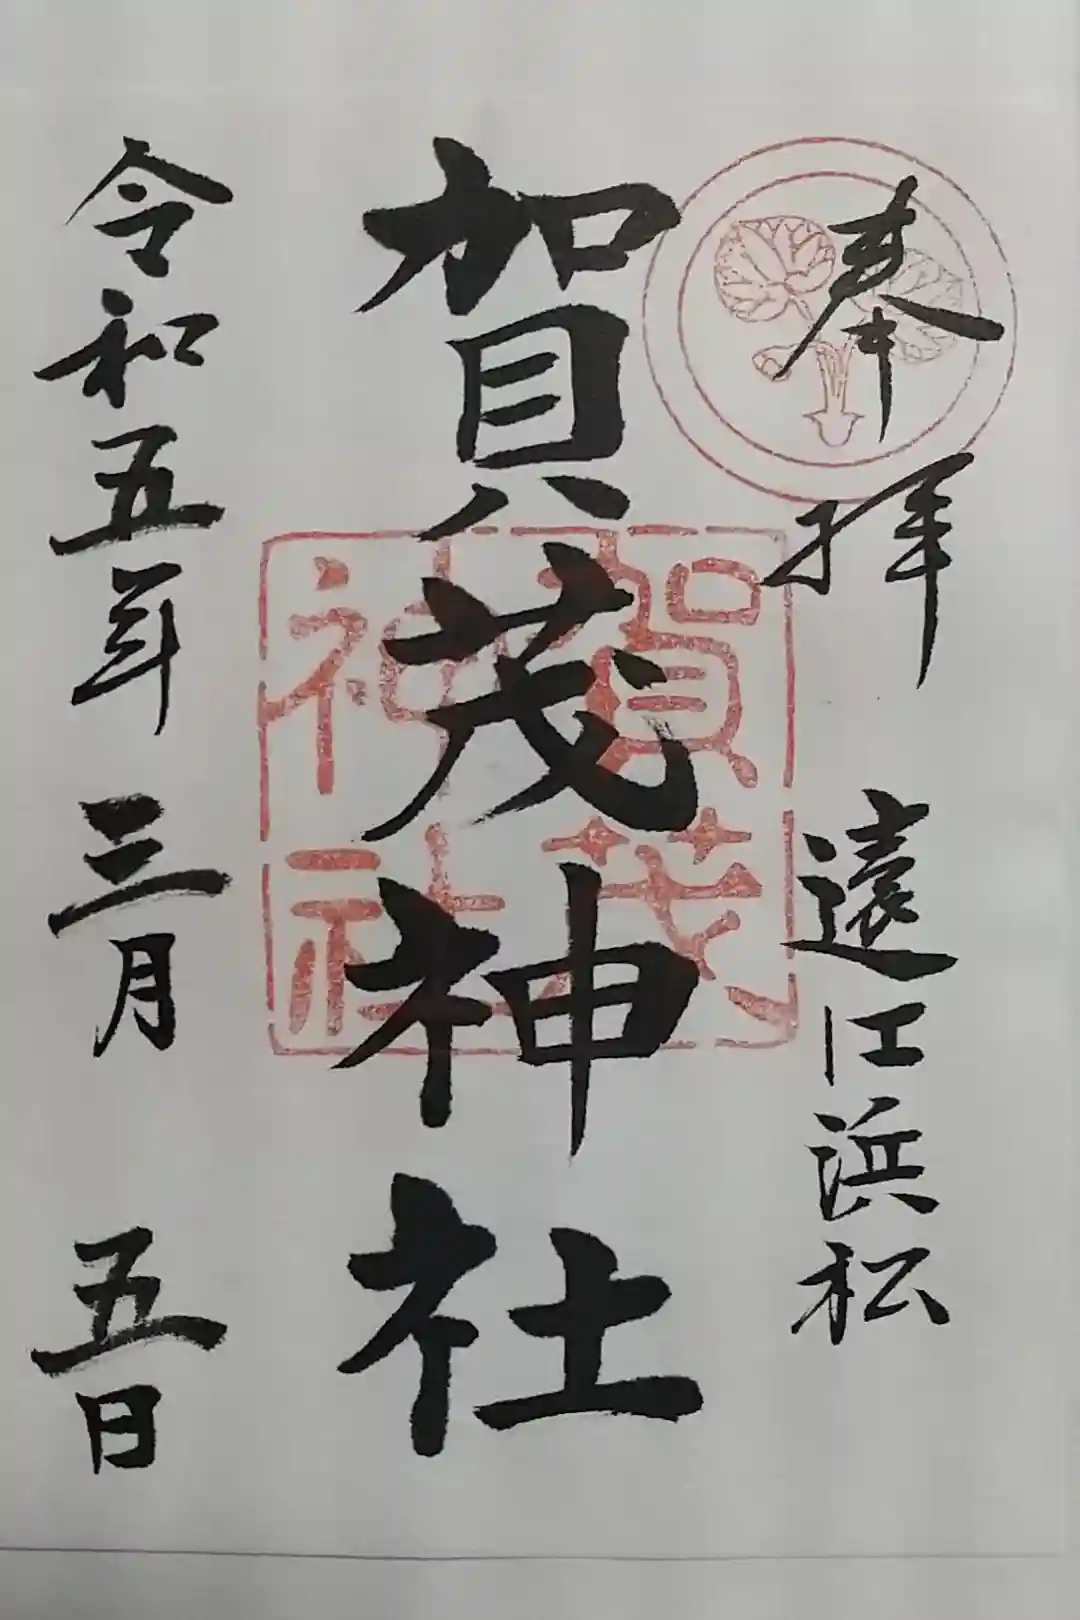 奉拝
遠江浜松
賀茂神社
賀茂
神社
令和五年三月五日